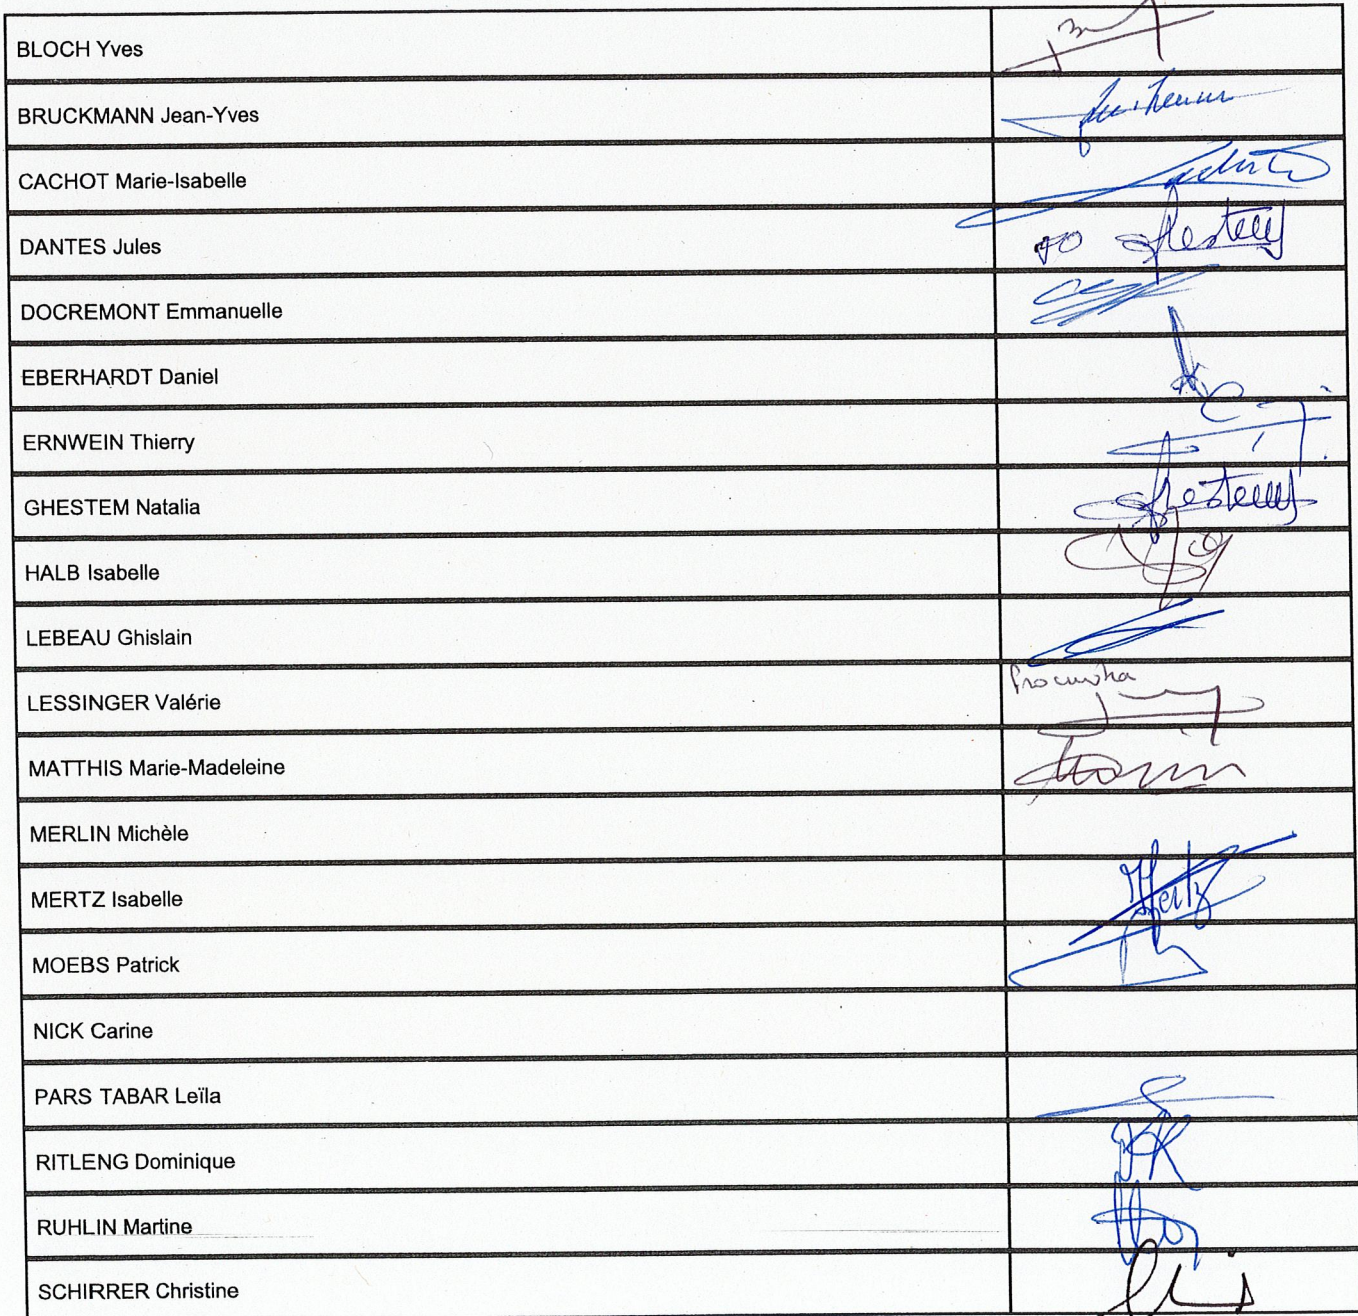 BLOCH Yves
BRUCKMANN Jean-Yves
CACHOT Marie-Isabelle
DANTES Jules
DOCREMONT Emmanuelle
EBERHARDT Daniel
ERNWEIN Thierry
GHESTEM Natalia
HALB Isabelle
LEBEAU Ghislain
LESSINGER Valérie
MATTHIS Marie-Madeleine
MERLIN Michèle
MERTZ Isabelle Mertz
MOEBS Patrick
NICK Carine
PARS TABAR Leïla
RITLENG Dominique
RUHLIN Martine
SCHIRRER Christine